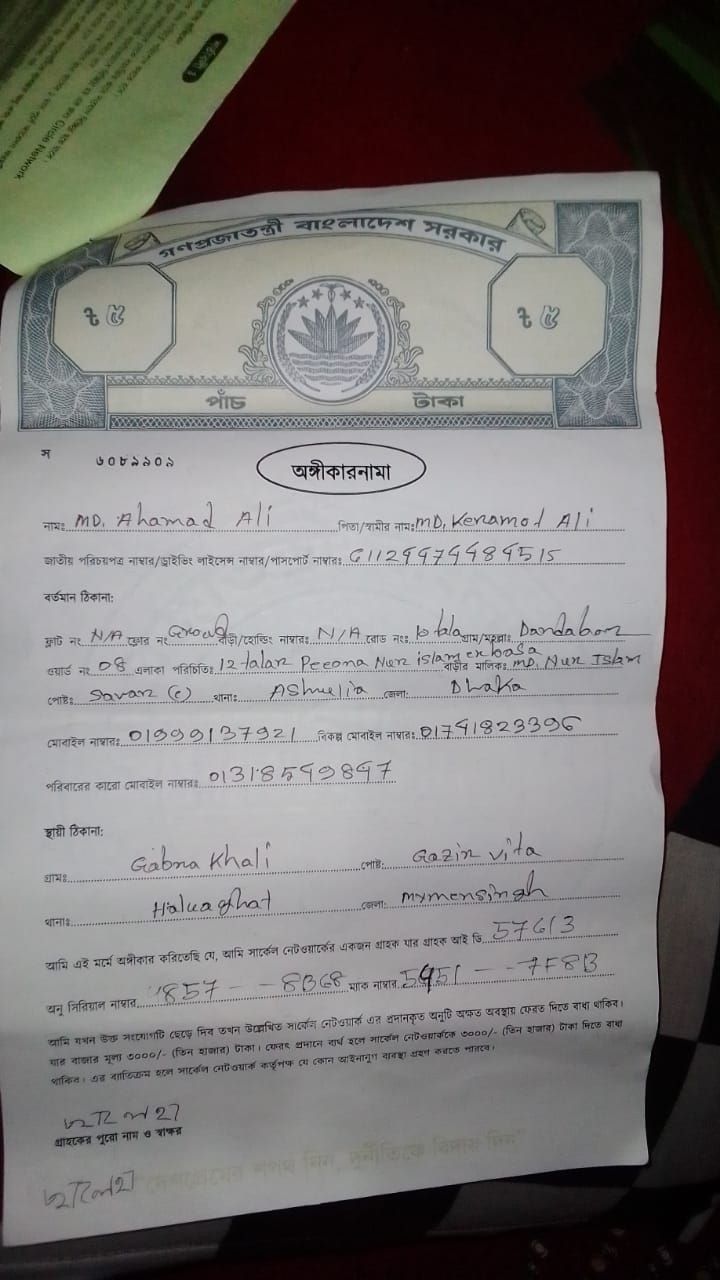 Circle Network
গণপ্রজাতন্ত্রী বাংলাদেশ সরকার
৳ ৫ ৳ ৫
পাঁচ টাকা
স ৬০৮৯৯০৯
অঙ্গীকারনামা
নামঃ MD. Ahamad Ali পিতা/স্বামীর নামঃ MD. Keramot Ali
জাতীয় পরিচয়পত্র নাম্বার/ড্রাইভিং লাইসেন্স নাম্বার/পাসপোর্ট নাম্বারঃ
বর্তমান ঠিকানা:
ফ্লাট নং N/A ফ্লোর নং Ground বাড়ী/হোল্ডিং নাম্বারঃ N/A রোড নংঃ 10 tala গ্রাম/মহল্লাঃ Dandabor
ওয়ার্ড নং 08 এলাকা পরিচিতিঃ 12 talar Peecona Nur islam er basa বাড়ীর মালিকঃ MD. Nur Islam
পোষ্টঃ Savar (c) থানাঃ AShulia জেলা: Dhaka
মোবাইল নাম্বারঃ 01999137921 বিকল্প মোবাইল নাম্বারঃ 01741823396
পরিবারের কারো মোবাইল নাম্বারঃ 01318549847
স্থায়ী ঠিকানা:
গ্রামঃ Gabra Khali পোষ্ট: Gazir vita
থানাঃ Haluaghat জেলা: Mymensingh
আমি এই মর্মে অঙ্গীকার করিতেছি যে, আমি সার্কেল নেটওয়ার্কের একজন গ্রাহক যার গ্রাহক আই ডি 57613
অনু সিরিয়াল নাম্বার 857 - - 8B68 ম্যাক নাম্বার 5451 - - 7F8B
আমি যখন উক্ত সংযোগটি ছেড়ে দিব তখন উল্লেখিত সার্কেল নেটওয়ার্ক এর প্রদানকৃত অনুটি অক্ষত অবস্থায় ফেরত দিতে বাধ্য থাকিব।
যার বাজার মূল্য ৩০০০/- (তিন হাজার) টাকা। ফেরৎ প্রদানে ব্যর্থ হলে সার্কেল নেটওয়ার্ককে ৩০০০/- (তিন হাজার) টাকা দিতে বাধ্য
থাকিব। এর ব্যতিক্রম হলে সার্কেল নেটওয়ার্ক কর্তৃপক্ষ যে কোন আইনানুগ ব্যবস্থা গ্রহণ করতে পারবে।
গ্রাহকের পুরো নাম ও স্বাক্ষর
"দেশপ্রেমের শপথ নিন, দুর্নীতিকে বিদায় দিন"